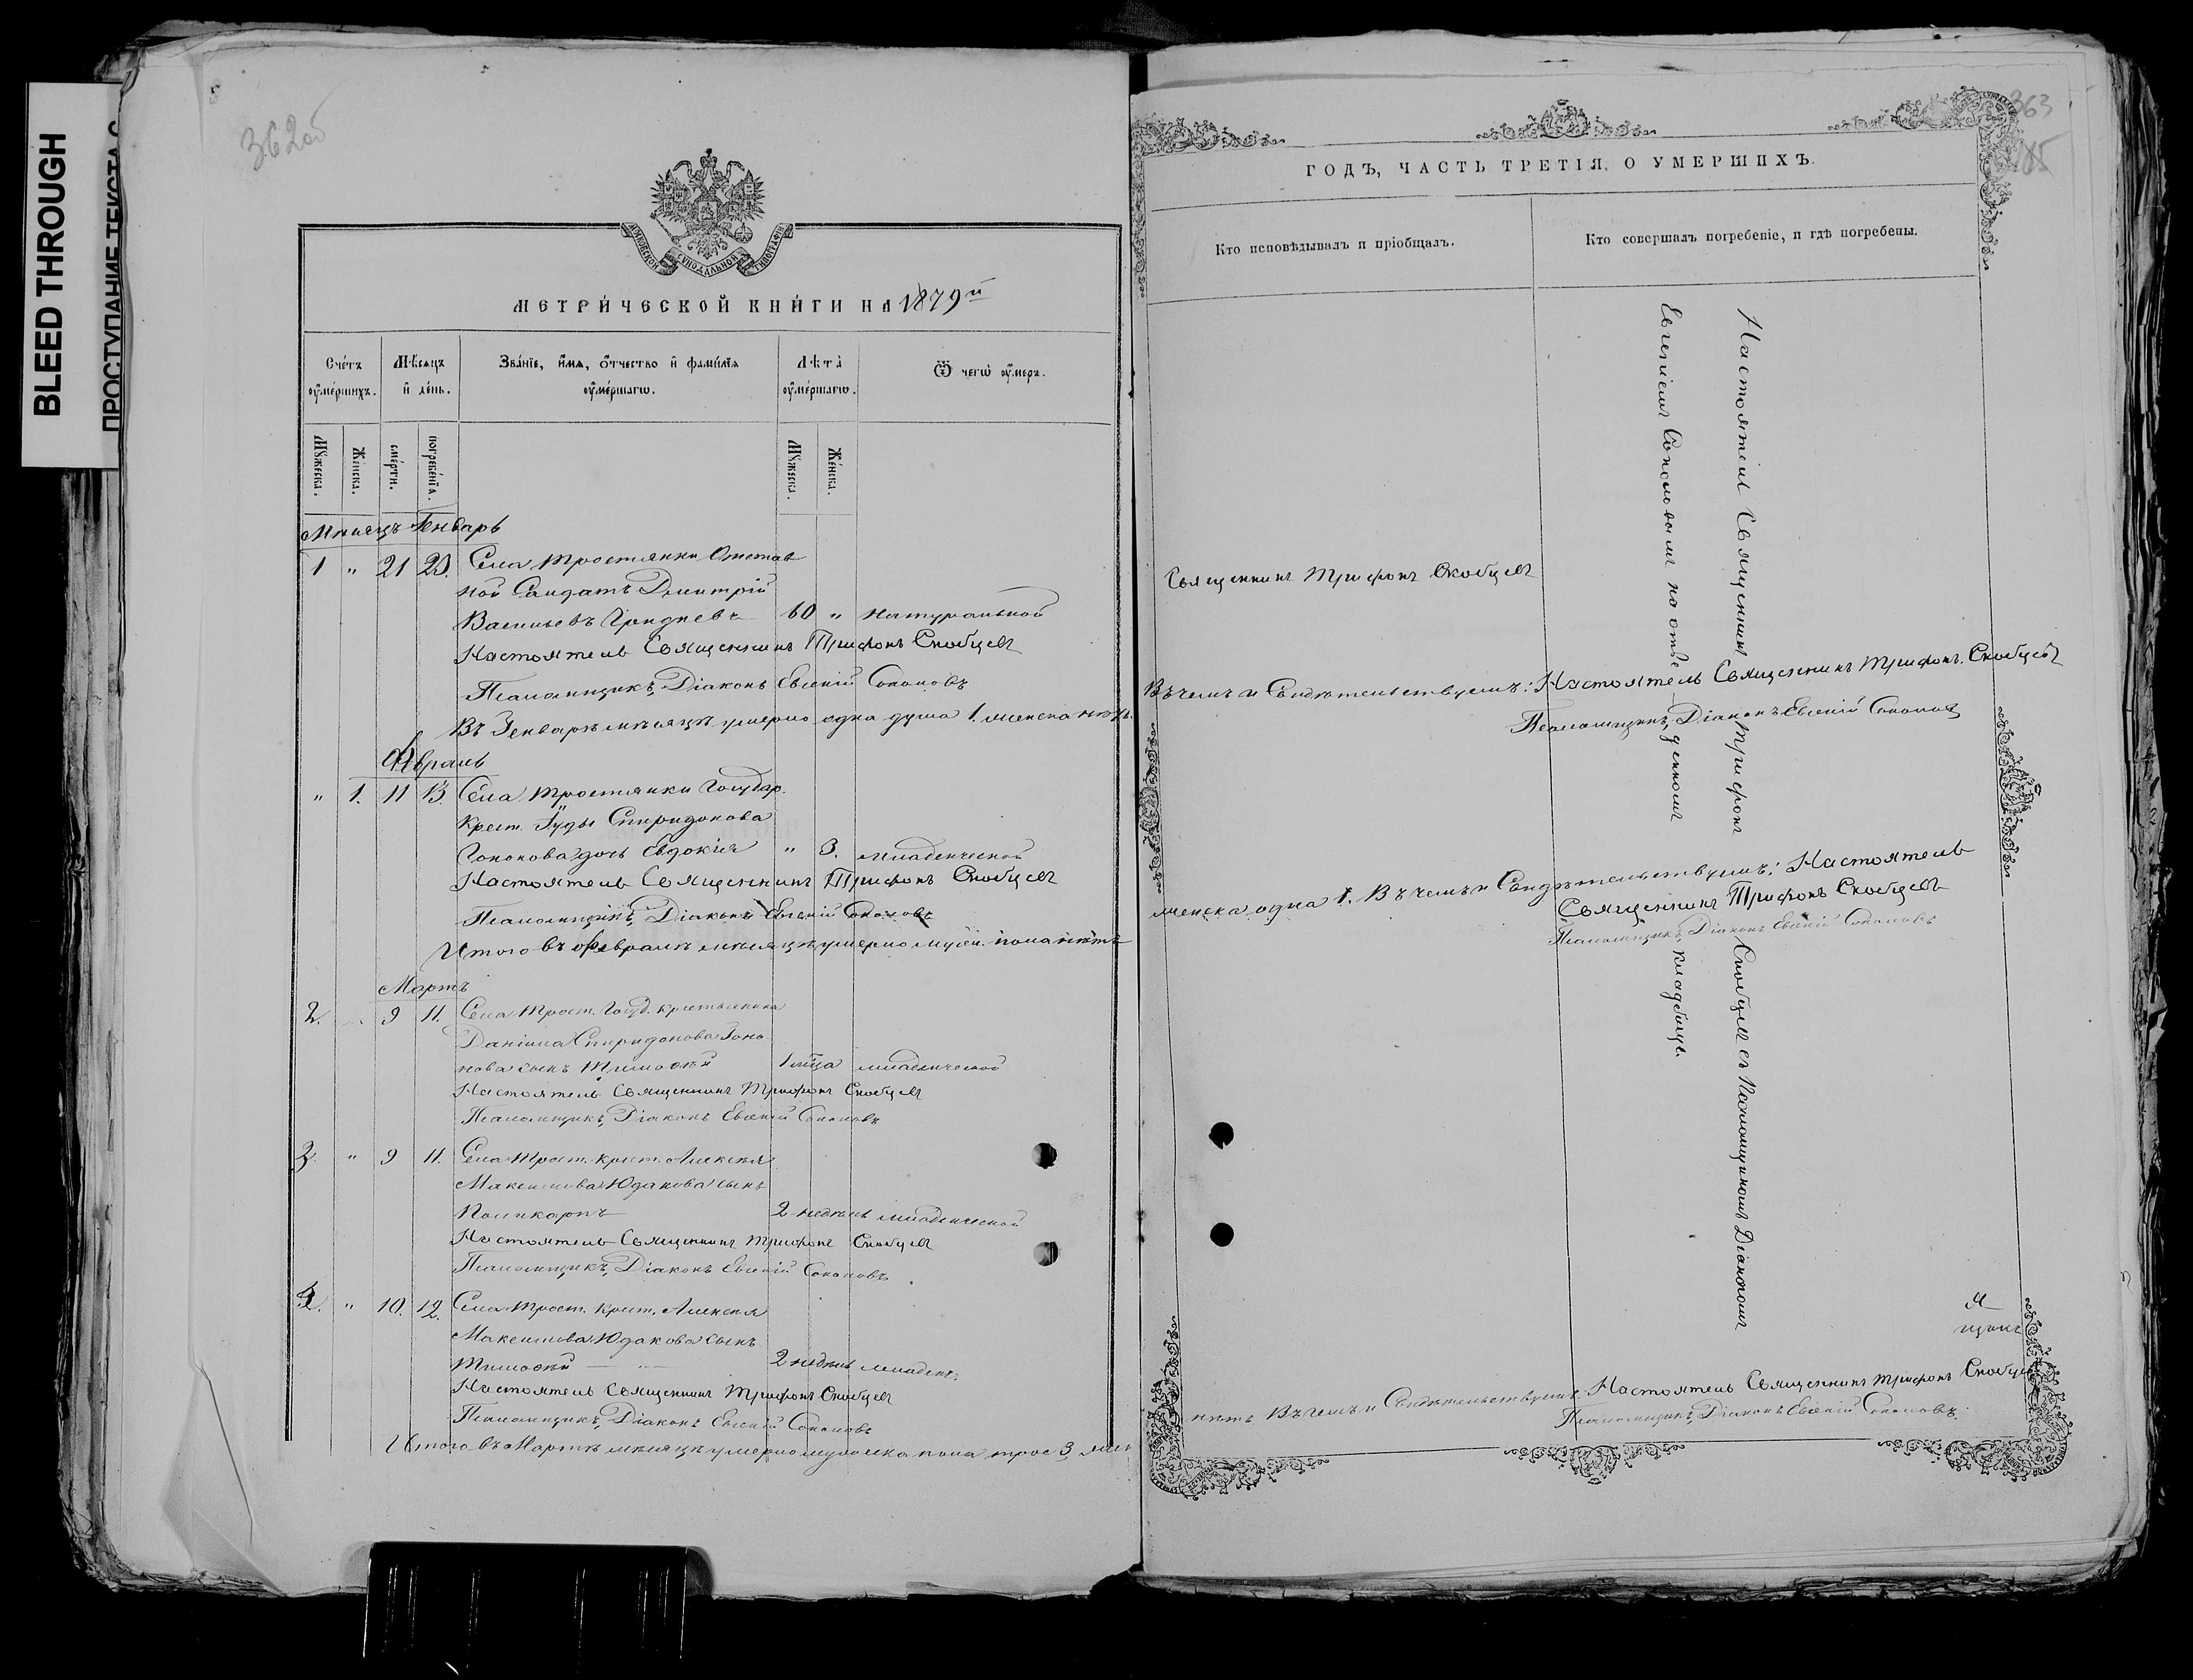 BLEED THROUGH
ПРОСТУПАНИЕ ТЕКСТА С
362об
МОСКОВСКОЙ СѴНОДАЛЬНОЙ ТИПОГРАФІИ
МЕТРИ́ЧЕСКОЙ КНИ́ГИ НА 1879й
Сче́тъ оумершихъ.
Мѣсяцъ и де́нь.
Зва́нїе, и́мя, о́тчество и фами́лїя оуме́ршагѡ.
Лѣта̀ оуме́ршагѡ.
Ѿ чегѡ̀ оумеръ.
Мꙋ́жеска.
Же́нска.
сме́рти.
погребе́нїѧ.
Мꙋ́жеска.
Же́нска.
Мѣсяцъ Генварь
1 " 21 23. Села Тростянки Отстав
ной Солдатъ Димитрій
Васильевъ Гридневъ 60 " натуральной
Настоятель Священникъ Трифонъ Скобцевъ
Псаломщикъ, Діаконъ Евгеній Соколовъ
Въ Генварѣ мѣсяцѣ умерло одна душа 1. женска нѣтъ.
Февраль
" 1. 11 13. Села Тростянки Государ.
Крест. Іуды Спиридонова
Гононова дочь Евдокія " 3. младенческой
Настоятель Священникъ Трифонъ Скобцевъ
Псаломщикъ, Діаконъ Евгеній Соколовъ
Итого въ Февралѣ мѣсяцѣ умерло мужск. пола нѣтъ
Мартъ
2. " 9 11. Села Трост. Госуд. крестьянина
Даніила Спиридонова Гоно
нова сынъ Тимофей 1 мѣсяца младенческой
Настоятель Священникъ Трифонъ Скобцевъ
Псаломщикъ, Діаконъ Евгеній Соколовъ
3. " 9 11. Села Трост. крест. Алексѣя
Максимова Юдакова сынъ
Поликарпъ 2 недѣль младенческой
Настоятель Священникъ Трифонъ Скобцевъ
Псаломщикъ, Діаконъ Евгеній Соколовъ
4. " 10. 12. Села Трост. крест. Алексѣя
Максимова Юдакова сынъ
Тимофей 2 недѣль младенч.
Настоятель Священникъ Трифонъ Скобцевъ
Псаломщикъ, Діаконъ Евгеній Соколовъ
Итого въ Мартѣ мѣсяцѣ умерло мужеска пола трое 3, жен
363
85
ГОДЪ, ЧАСТЬ ТРЕТІЯ, О УМЕРШИХЪ.
Кто исповѣдывалъ и пріобщалъ.
Кто совершалъ погребеніе, и гдѣ погребены.
Священникъ Трифонъ Скобцевъ
Настоятель Священникъ Трифонъ Скобцевъ съ Псаломщикомъ Діакономъ
Евгеніемъ Соколовымъ на отведенномъ кладбищѣ.
Въ чемъ и Свидѣтельствуемъ: Настоятель Священникъ Трифонъ Скобцевъ
Псаломщикъ, Діаконъ Евгеній Соколовъ
женска одна 1. Въ чемъ и Свидѣтельствуемъ: Настоятель
Священникъ Трифонъ Скобцевъ
Псаломщикъ, Діаконъ Евгеній Соколовъ
нѣтъ Въ чемъ и Свидѣтельствуемъ: Настоятель Священникъ Трифонъ Скобцевъ
Псаломщикъ, Діаконъ Евгеній Соколовъ.